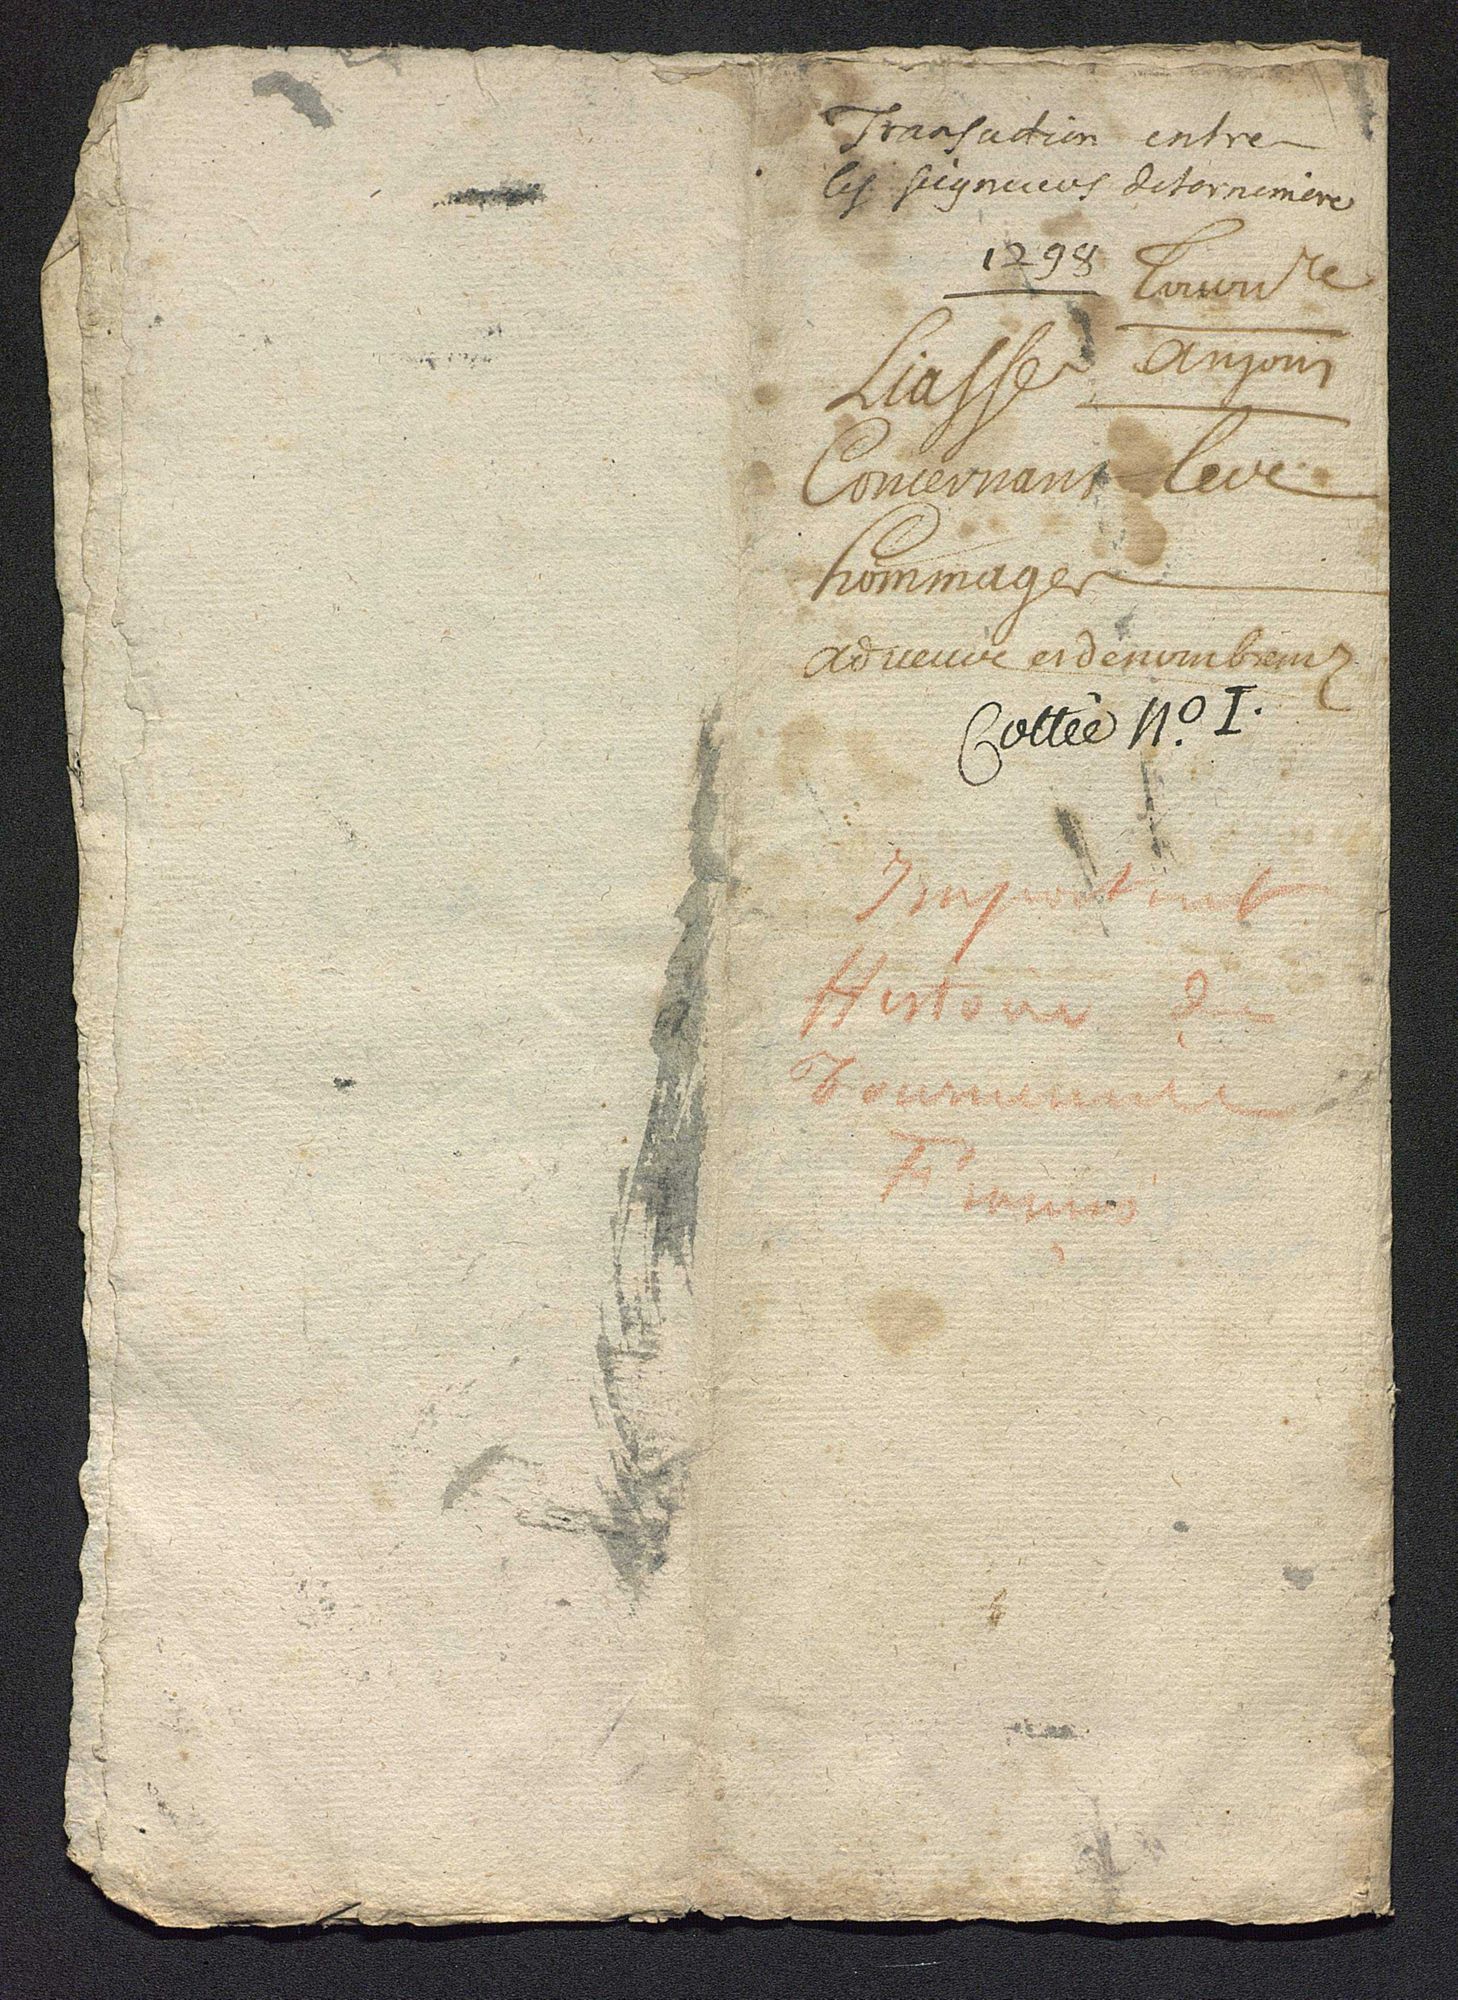 Transaction entre
les seigneurs detornemire
1298
Tourn.re
anjoni
Liasse
Concernant leur
hommager
adueuüe et denombremz
Cottée N.º I.
Important
Histoire de
Tournemire